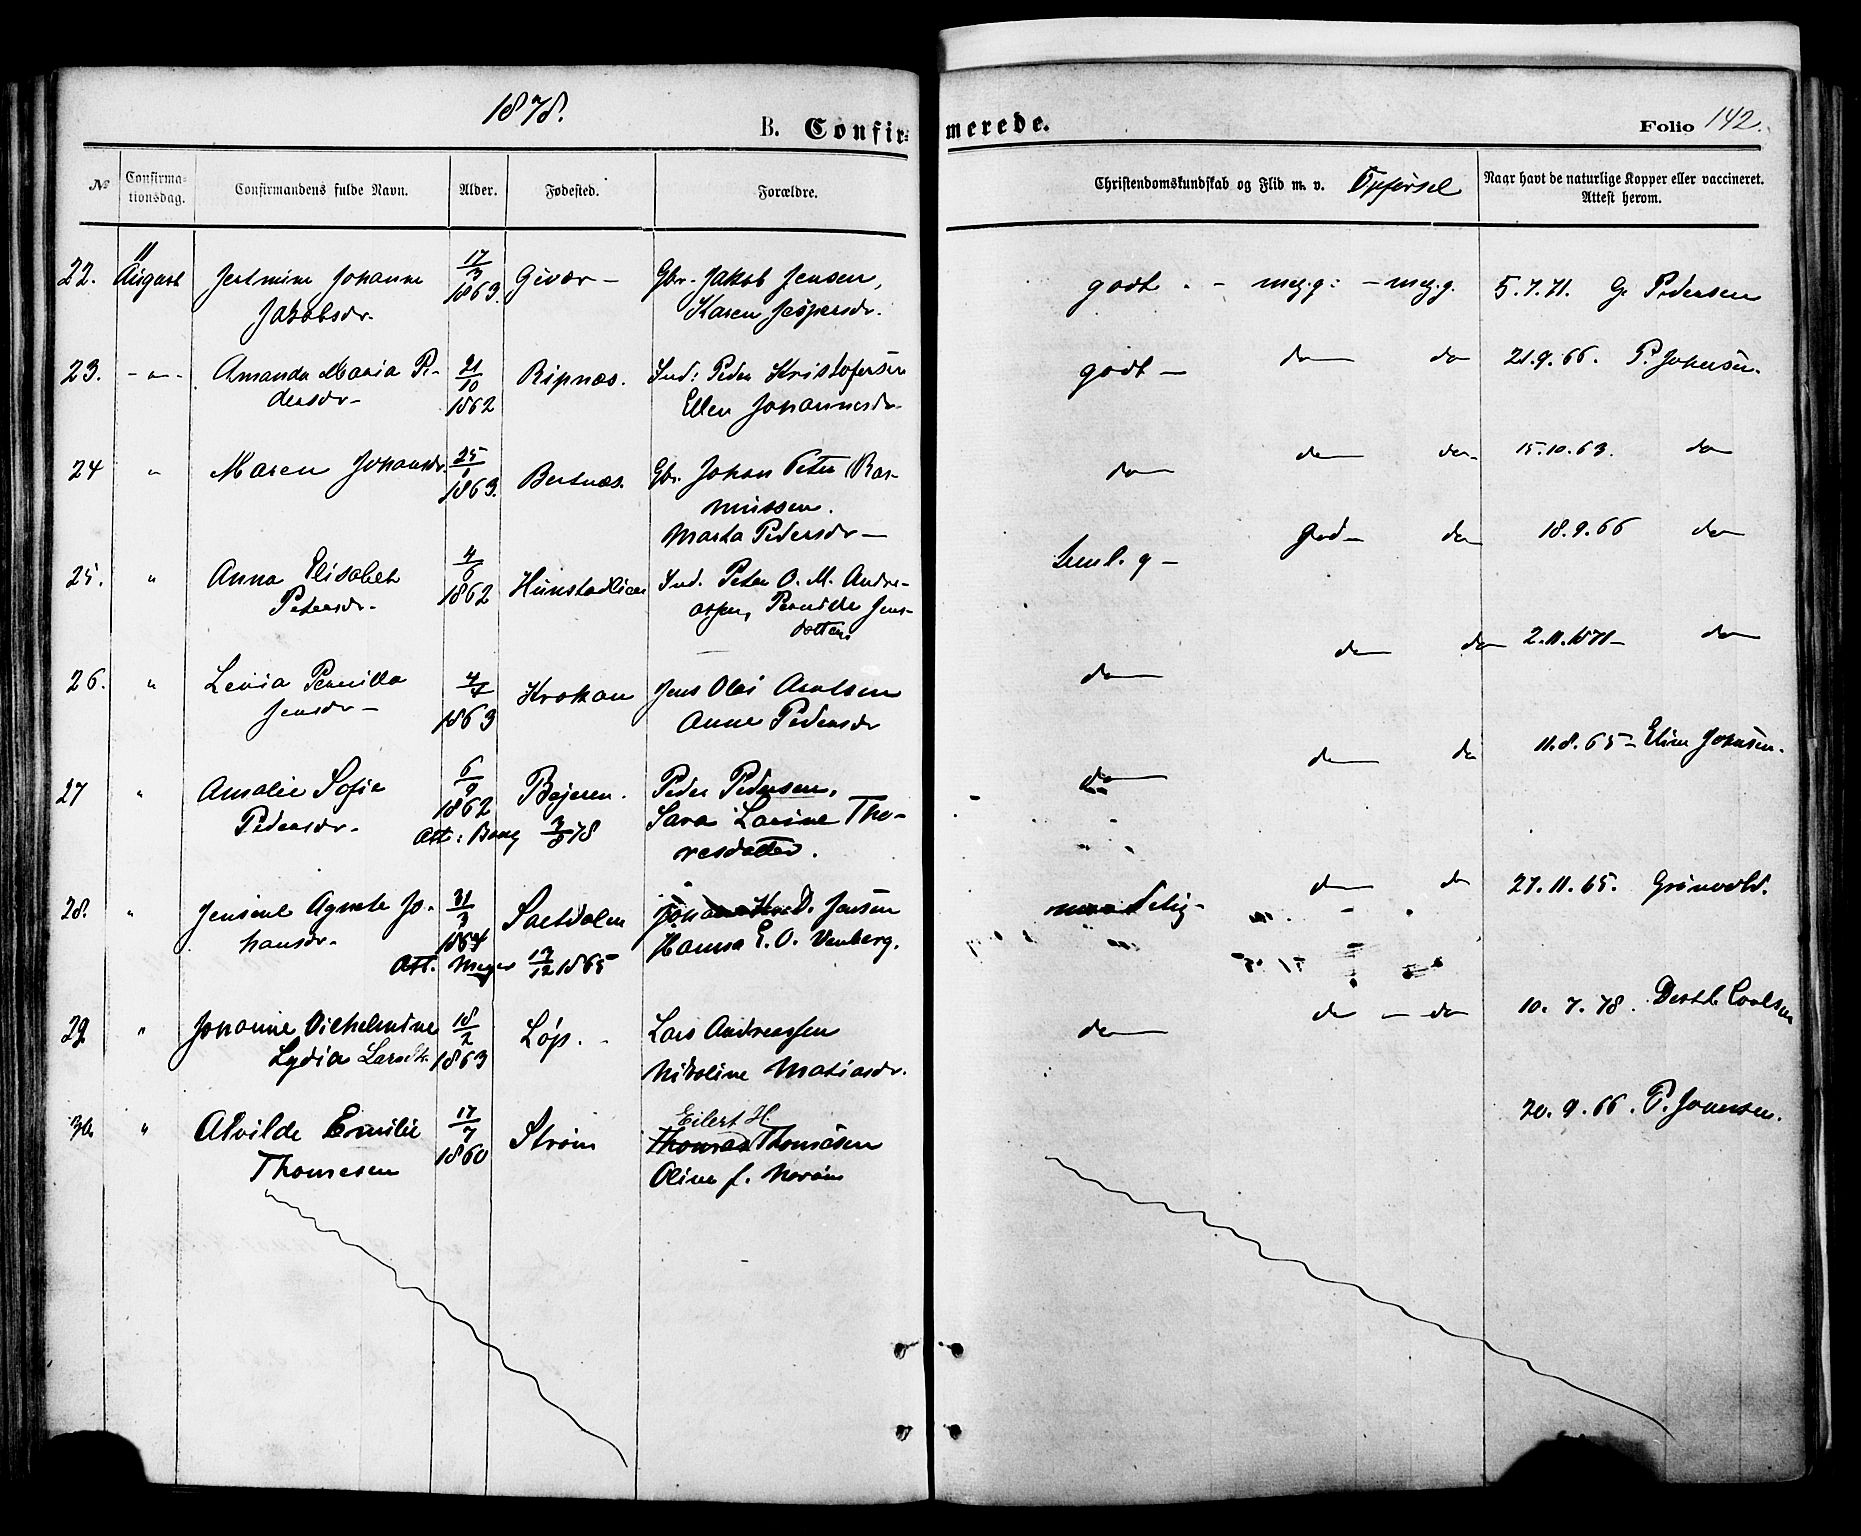 1878.
B. Confir-
merede.
Folio 142.
№
Confirma-
tionsdag.
Confirmandens fulde Navn.
Alder.
Fødested.
Forældre.
Christendomskundskab og Flid m. v. Opførsel
Naar havt de naturlige Kopper eller vaccineret.
Attest herom.
22. 11 August Jertmine Johanne Jakobsdr. 17/3 1863. Givær - Gbr. Jakob Jensen, godt. - meg. g: - meg. g. 5.7.71. Pedersen
Karen Jespersdr.
23. - " - Amanda Maria Pe- 21/10 1862 Ripnæs. Ind: Peder Kristofersen godt - do do 21.9.66. P. Johnsen.
dersdr - Ellen Johannesdr.
24 " Maren Johansdr. 25/1 1863. Bertnæs. Gbr. Johan Peter Ras- do do do 15.10.63. do
mussen.
Marta Pedersdr -
25. " Anna Elisabet 4/6 1862 Hunstadlien Ind. Peter O. M. Andre- teml. g - god - do 18.9.66 do
Petersdr - assen, Pernille Jens-
datter
26. " Pernilla 4/7 1863 Krokan Jens Olai Arntsen do do do 2.11.1871 - do
Jensdr - Anne Pedersdr
27 " Amalie Sofie 6/9 1862 Bejeren. Peder Pedersen, do do do 11.8.65 - Johnsen.
Pedersdr - Att: 78 Sara Larine Tho-
resdatter.
28. " Jensine Agnete Jo- 31/3 1864 Saltdalen D. Jensen do do 27.11.65. Grønvold.
hansdr - Att. Meyer 13/12 1865 Hanna E. O. Venberg.
29 " Johanne Vilhelmine 18/2 1863 Løp. - Lars Andreassen do do - do 10.7.78. Carlsen
Lydia Larsdtr. Nikoline Matiasdr.
30. " Alvilde Emilie 17/7 1860 Strøm Eilert H. 20.9.66. P. Johnsen.
Thomesen Thomas Thomesen
Oline f. Norøm